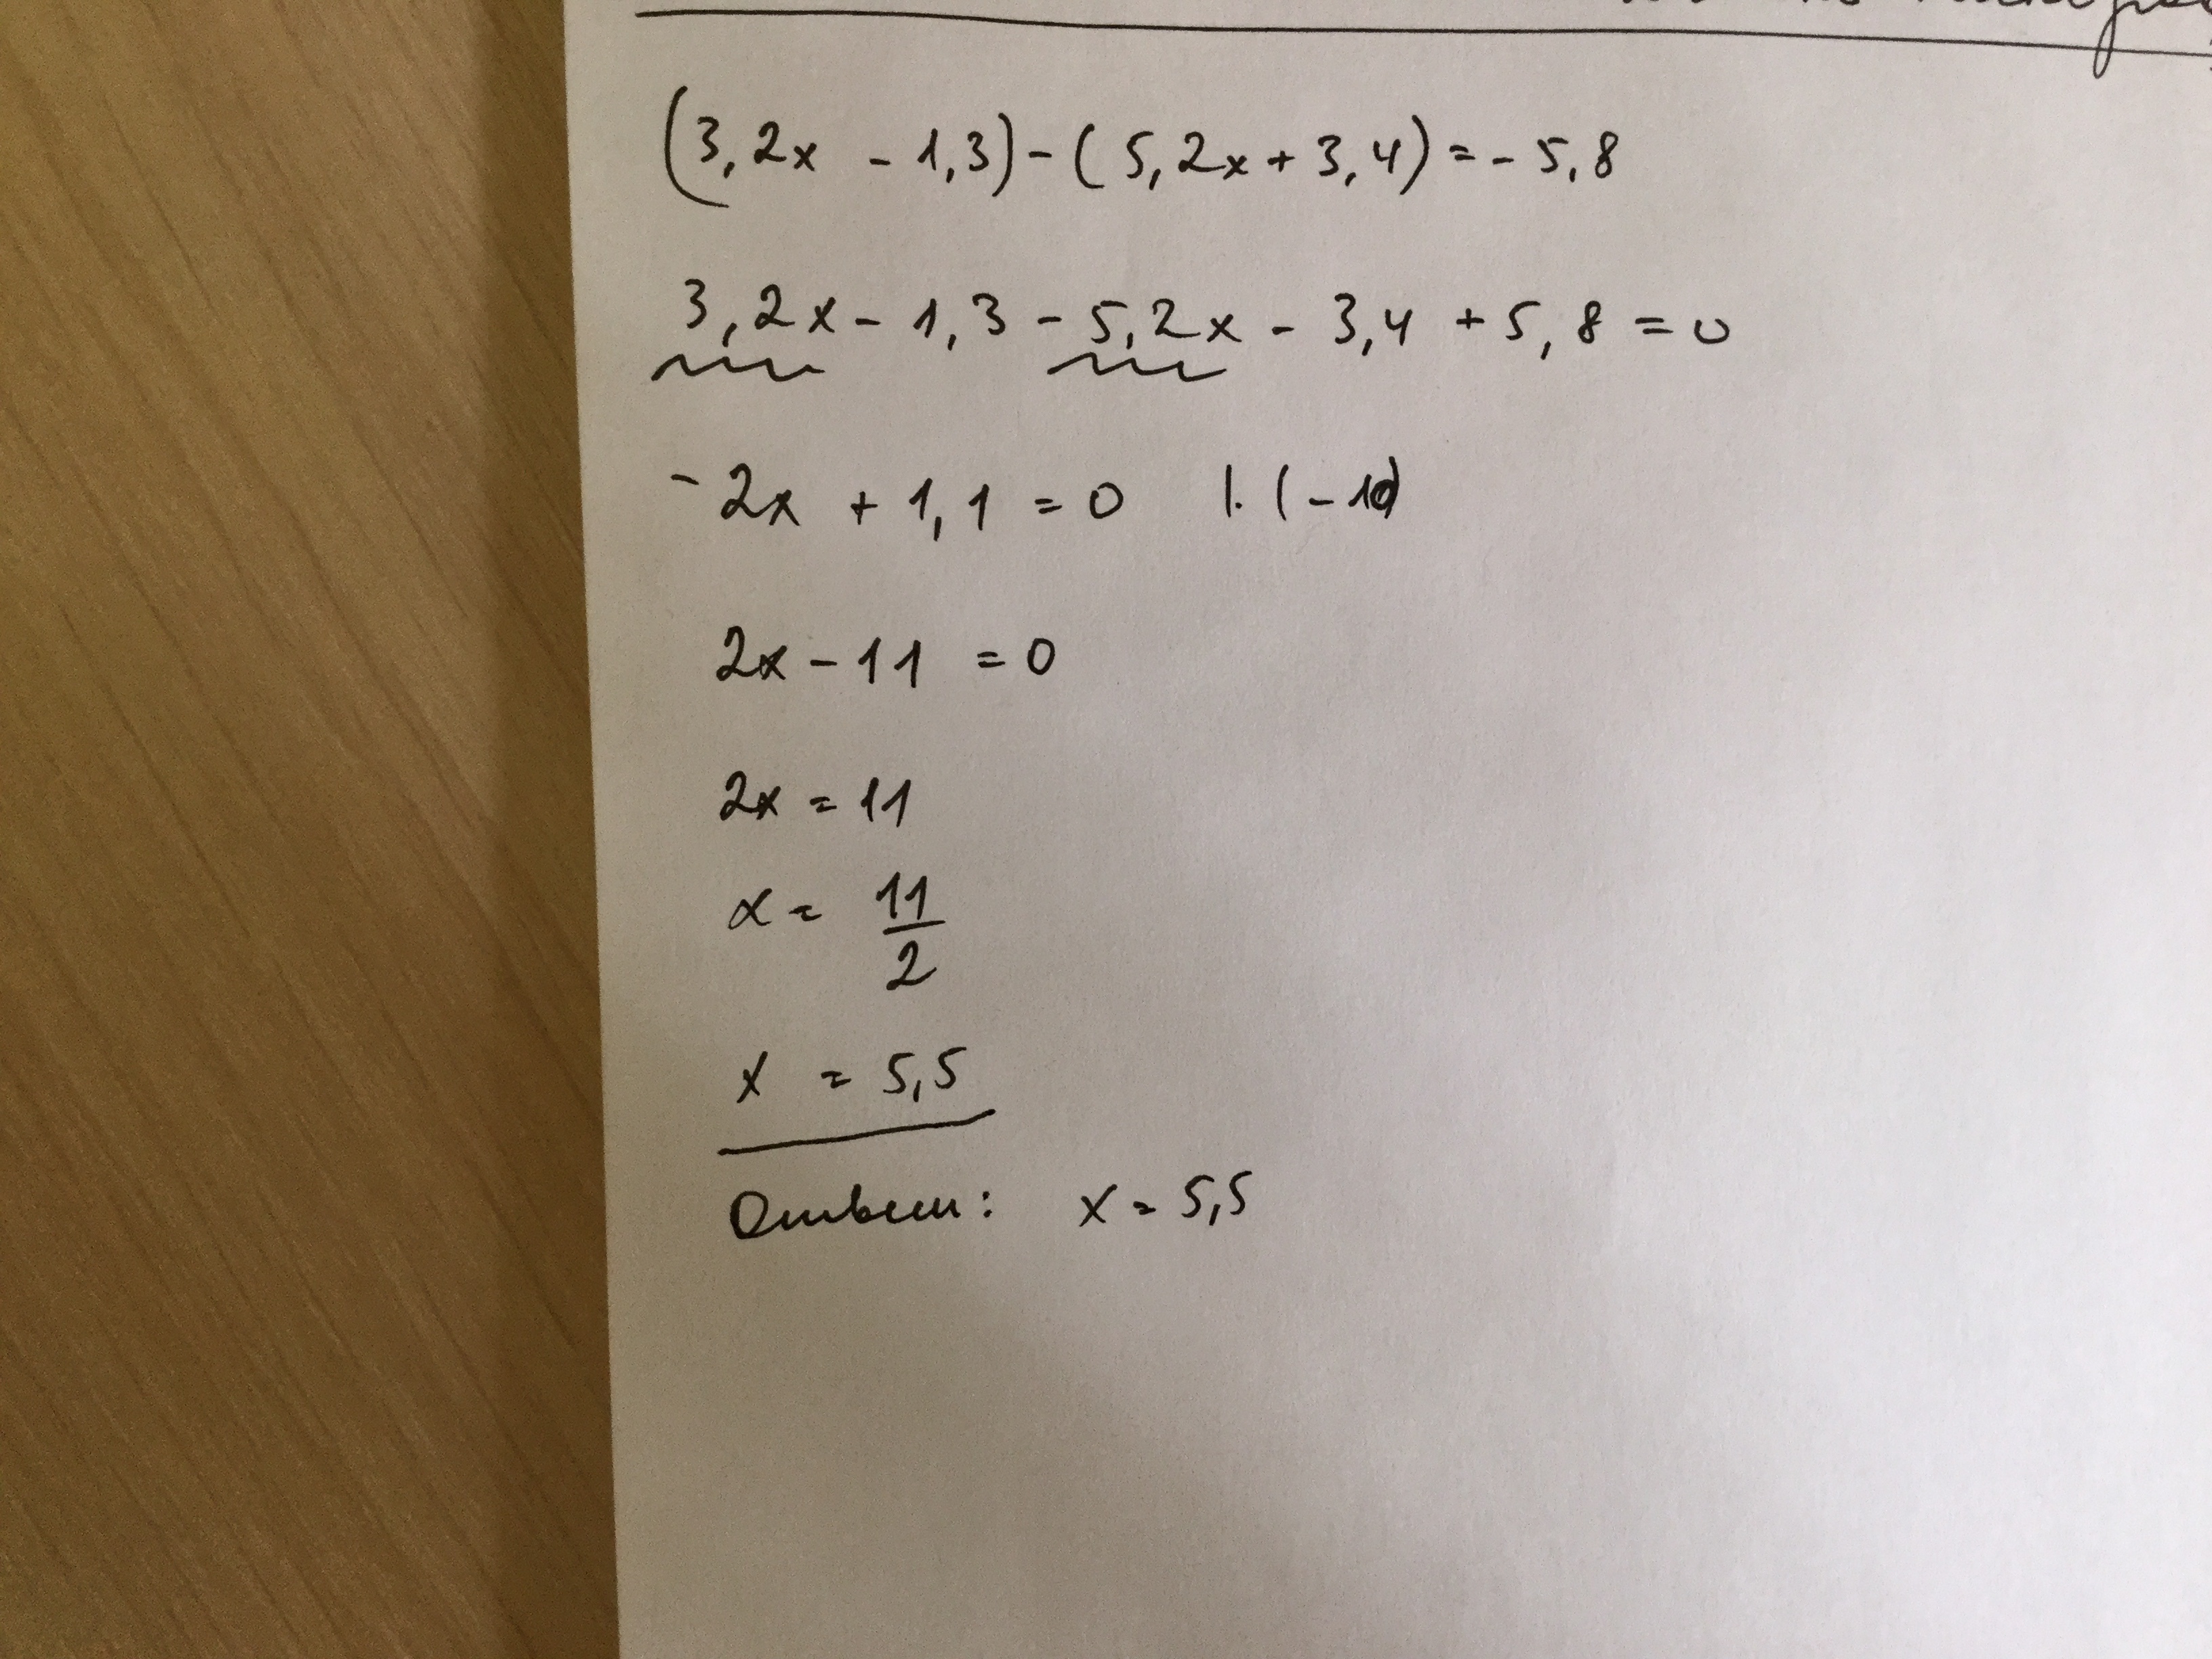 (3,2x - 1,3) - (5,2x + 3,4) = - 5,8
3,2x - 1,3 - 5,2x - 3,4 + 5,8 = 0
- 2x + 1,1 = 0 |· (-10)
2x - 11 = 0
2x = 11
x = 11/2
x = 5,5
Ответ: x = 5,5